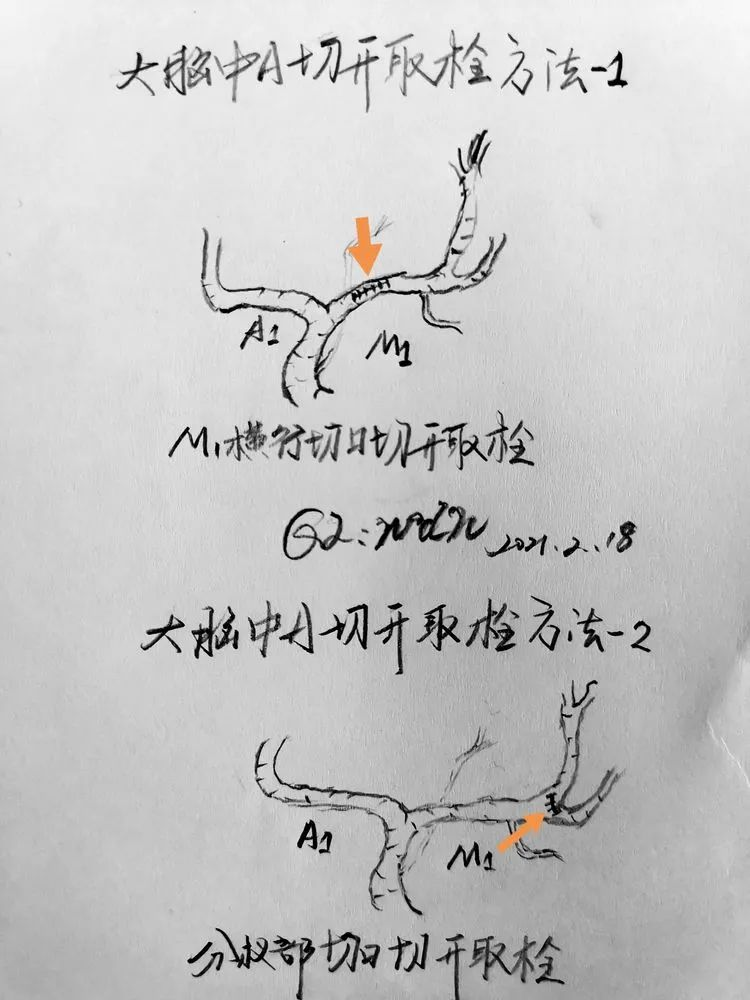 大脑中A切开取栓方法-1
A1
M1
M1横行切口切开取栓
2021.2.18
大脑中A切开取栓方法-2
A1
M1
分杈部切口切开取栓